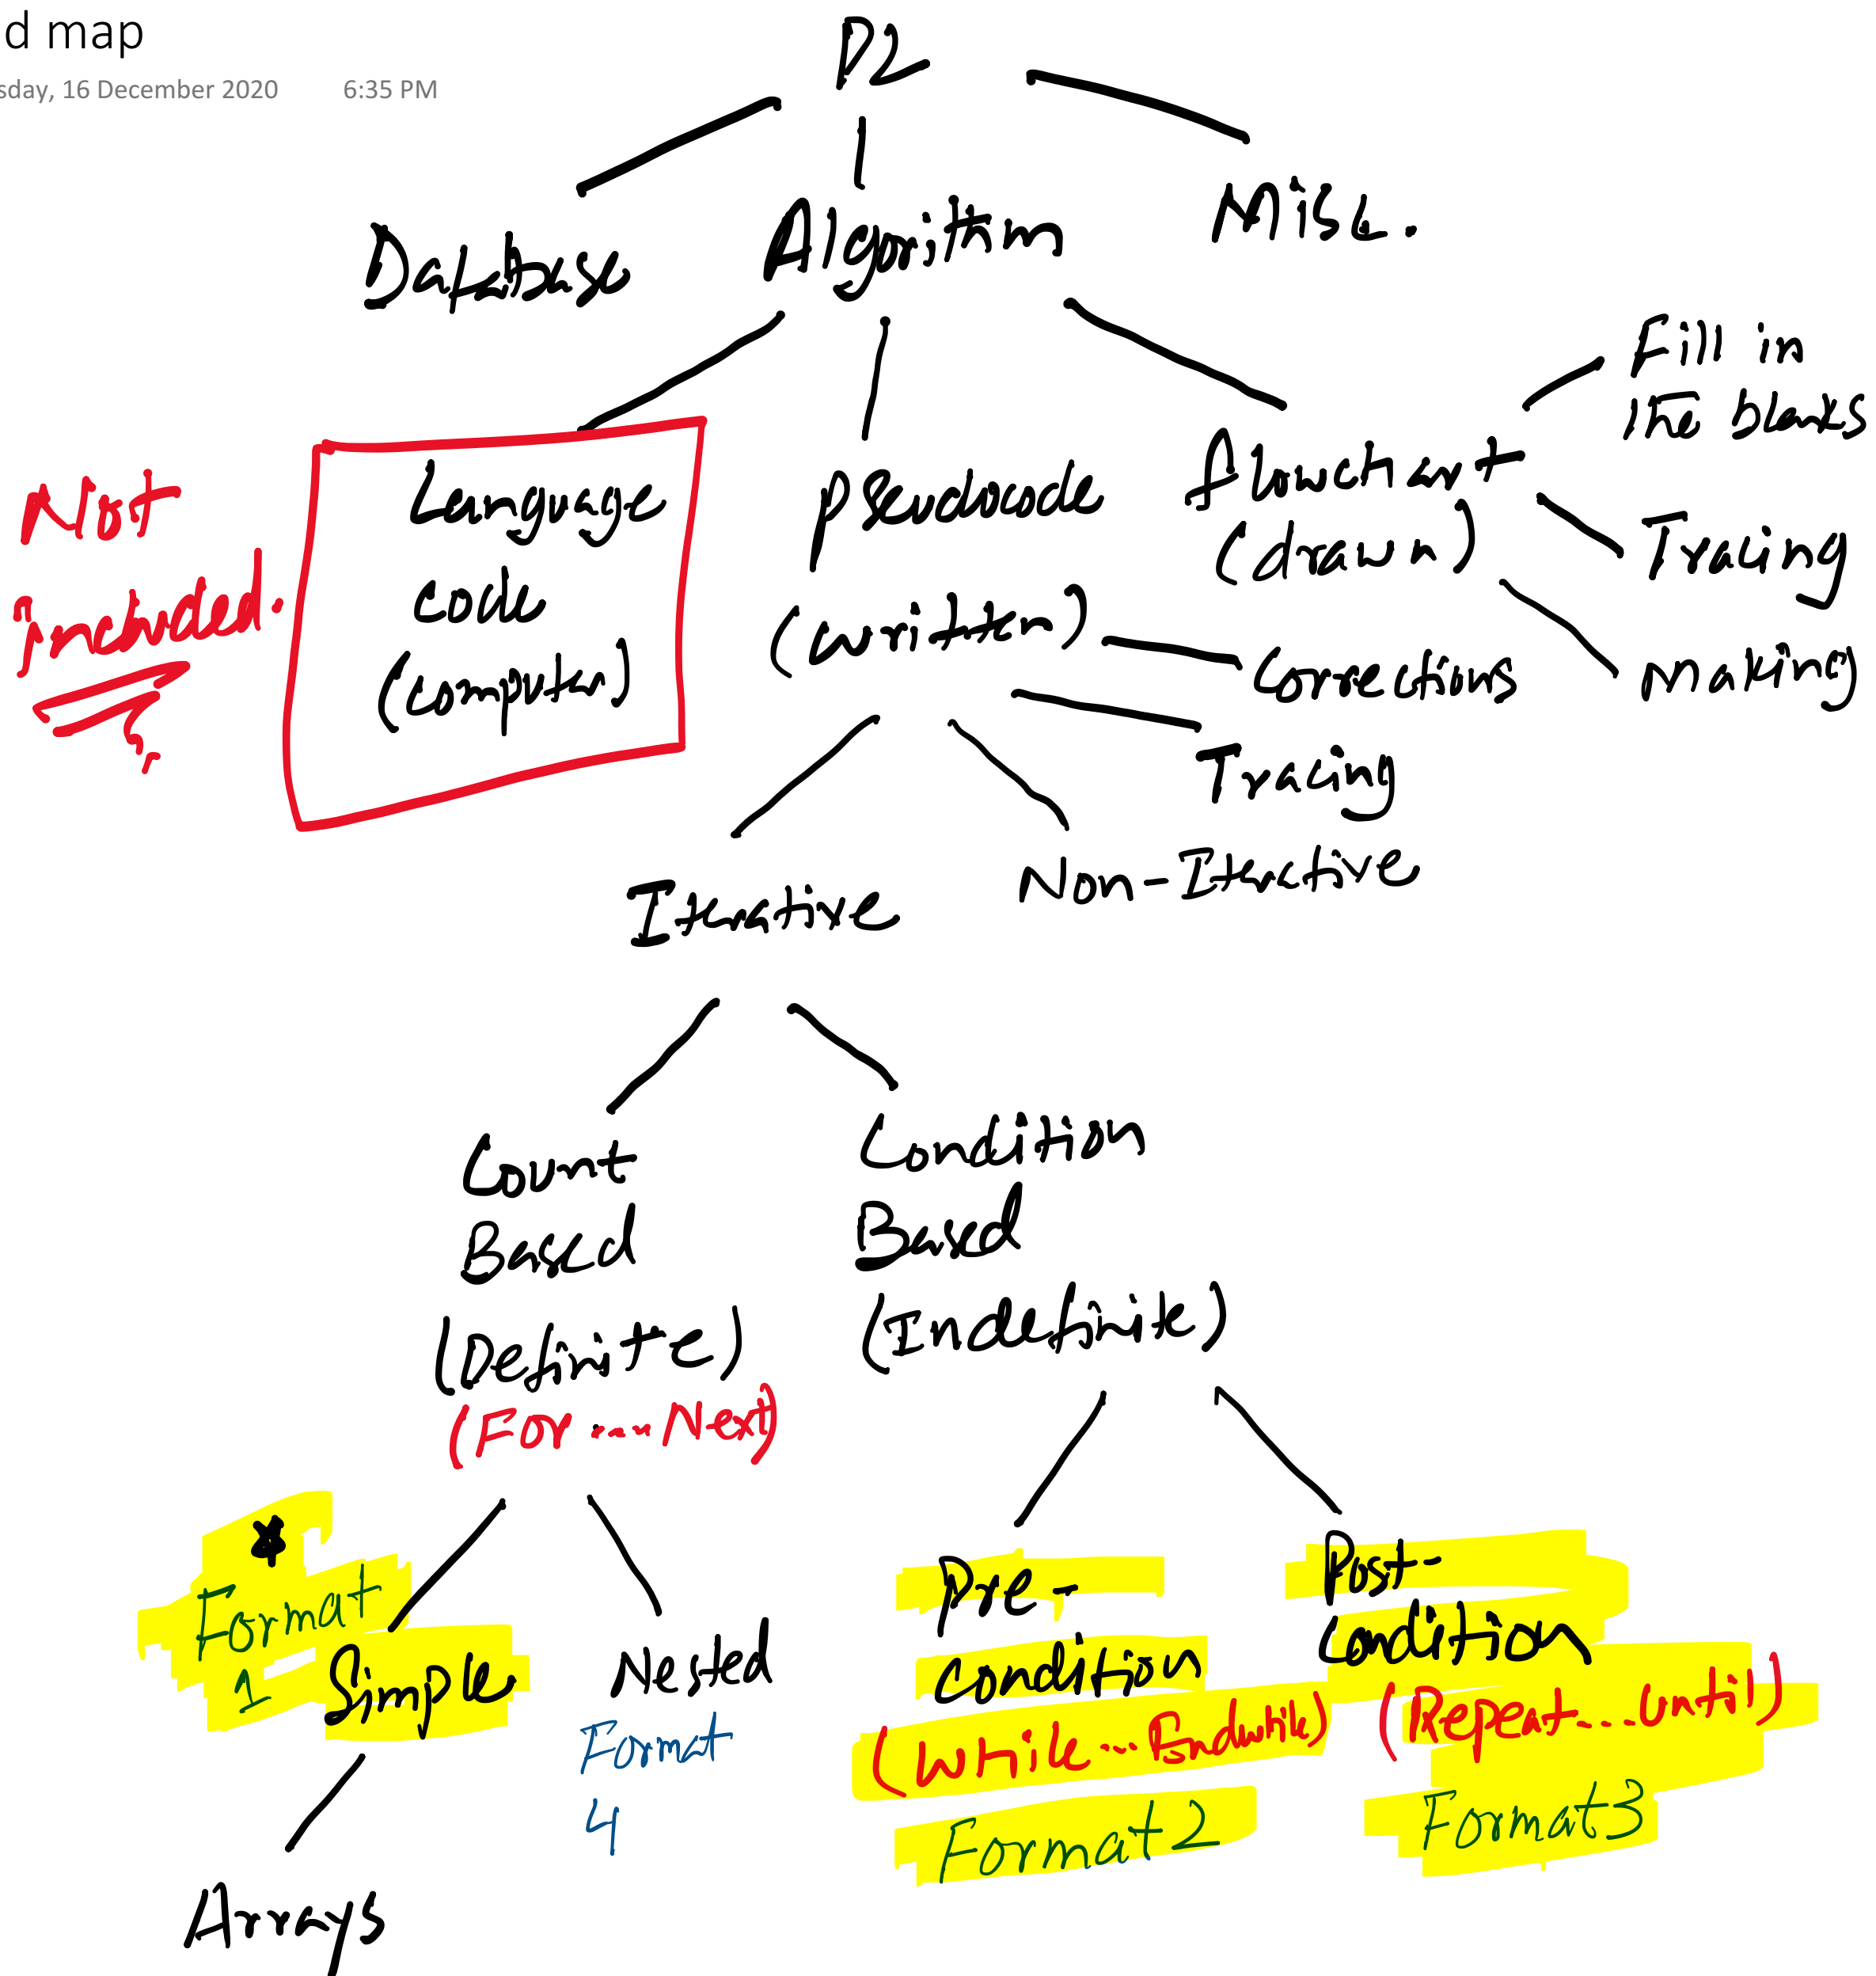 d map
sday, 16 December 2020 6:35 PM
P2
Database
Algorithm
Misc.
Not
included.
Language
code
(computer)
Pseudocode
(written)
flowchart
(drawn)
Fill in
the blanks
Tracing
making
Corrections
Tracing
Iterative
Non-Iterative
Count
Based
(Definite)
(For .... Next)
Condition
Based
(Indefinite)
*
Format
1
Simple
Nested
Format
4
Pre-
condition
(While...Endwhile)
Format 2
Post-
condition
(Repeat...until)
Format 3
Arrays